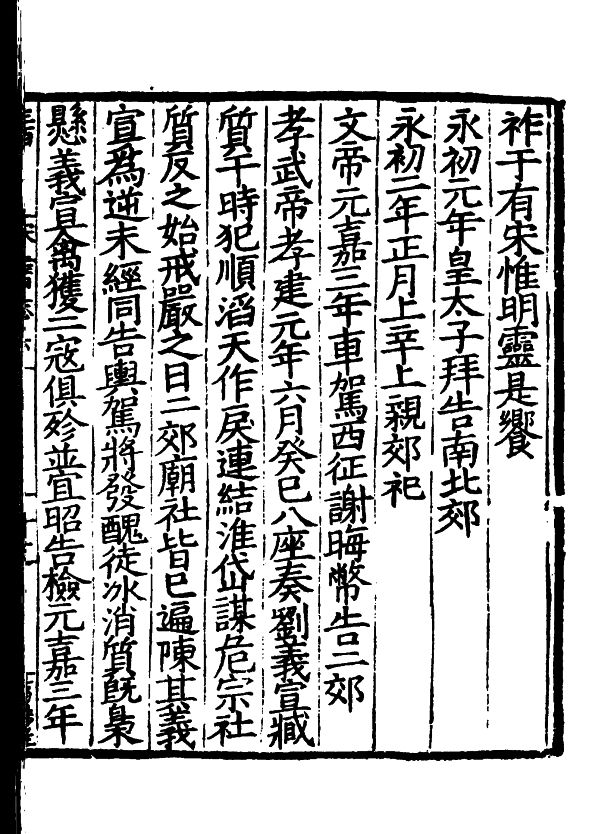 祚于有宋惟明靈是饗
永初元年皇太子拜告南北郊
永初二年正月上辛上親郊祀
文帝元嘉三年車駕西征謝晦幣告二郊
孝武帝孝建元年六月癸巳八座奏劉義宣臧
質干時犯順滔天作戾連結淮岱謀危宗社
質反之始戒嚴之日二郊廟社皆已遍陳其義
宣為逆未經同告輿駕將發醜徒冰消質既梟
懸義宣禽獲二寇俱殄並宜昭告檢元嘉三年